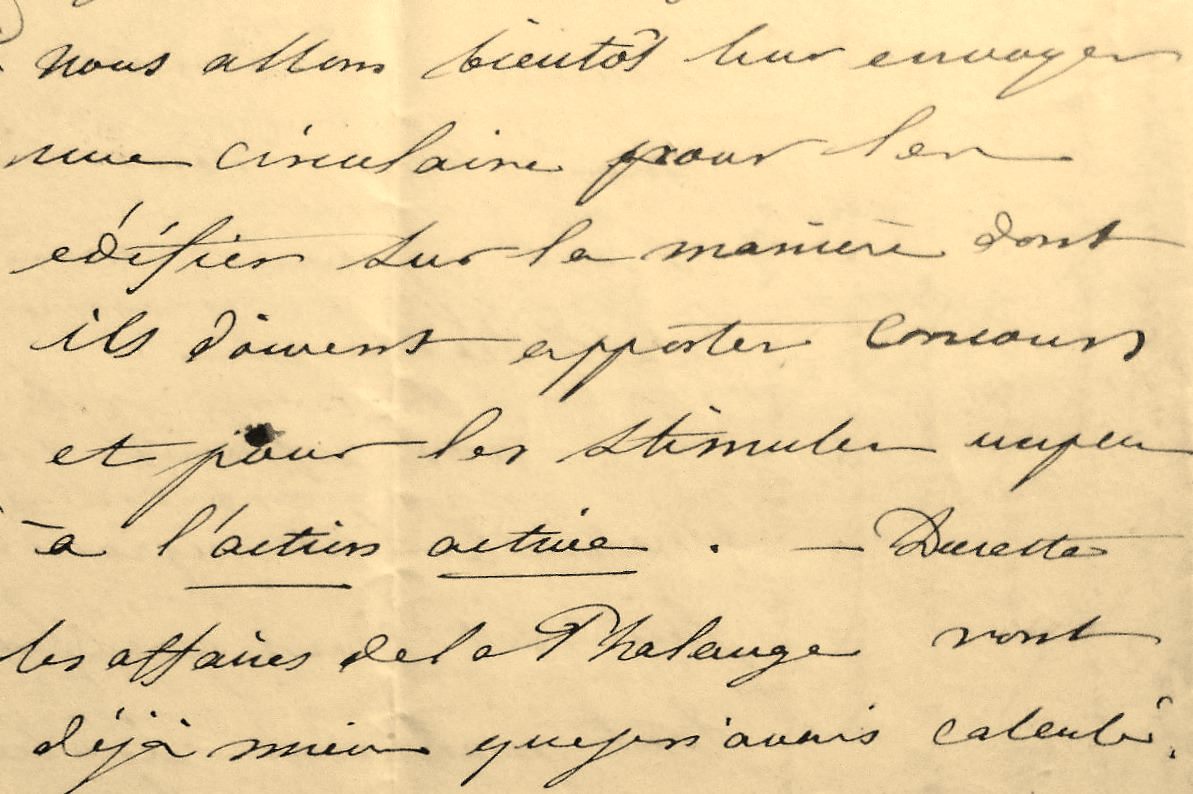 nous allons bientôt leur envoyer
une circulaire pour les
édifier sur la manière dont
ils doivent apporter concours
et pour les stimuler un peu
à l'action active. — Du reste
les affaires de la Phalange vont
déjà mieux que je n'avais calculé.